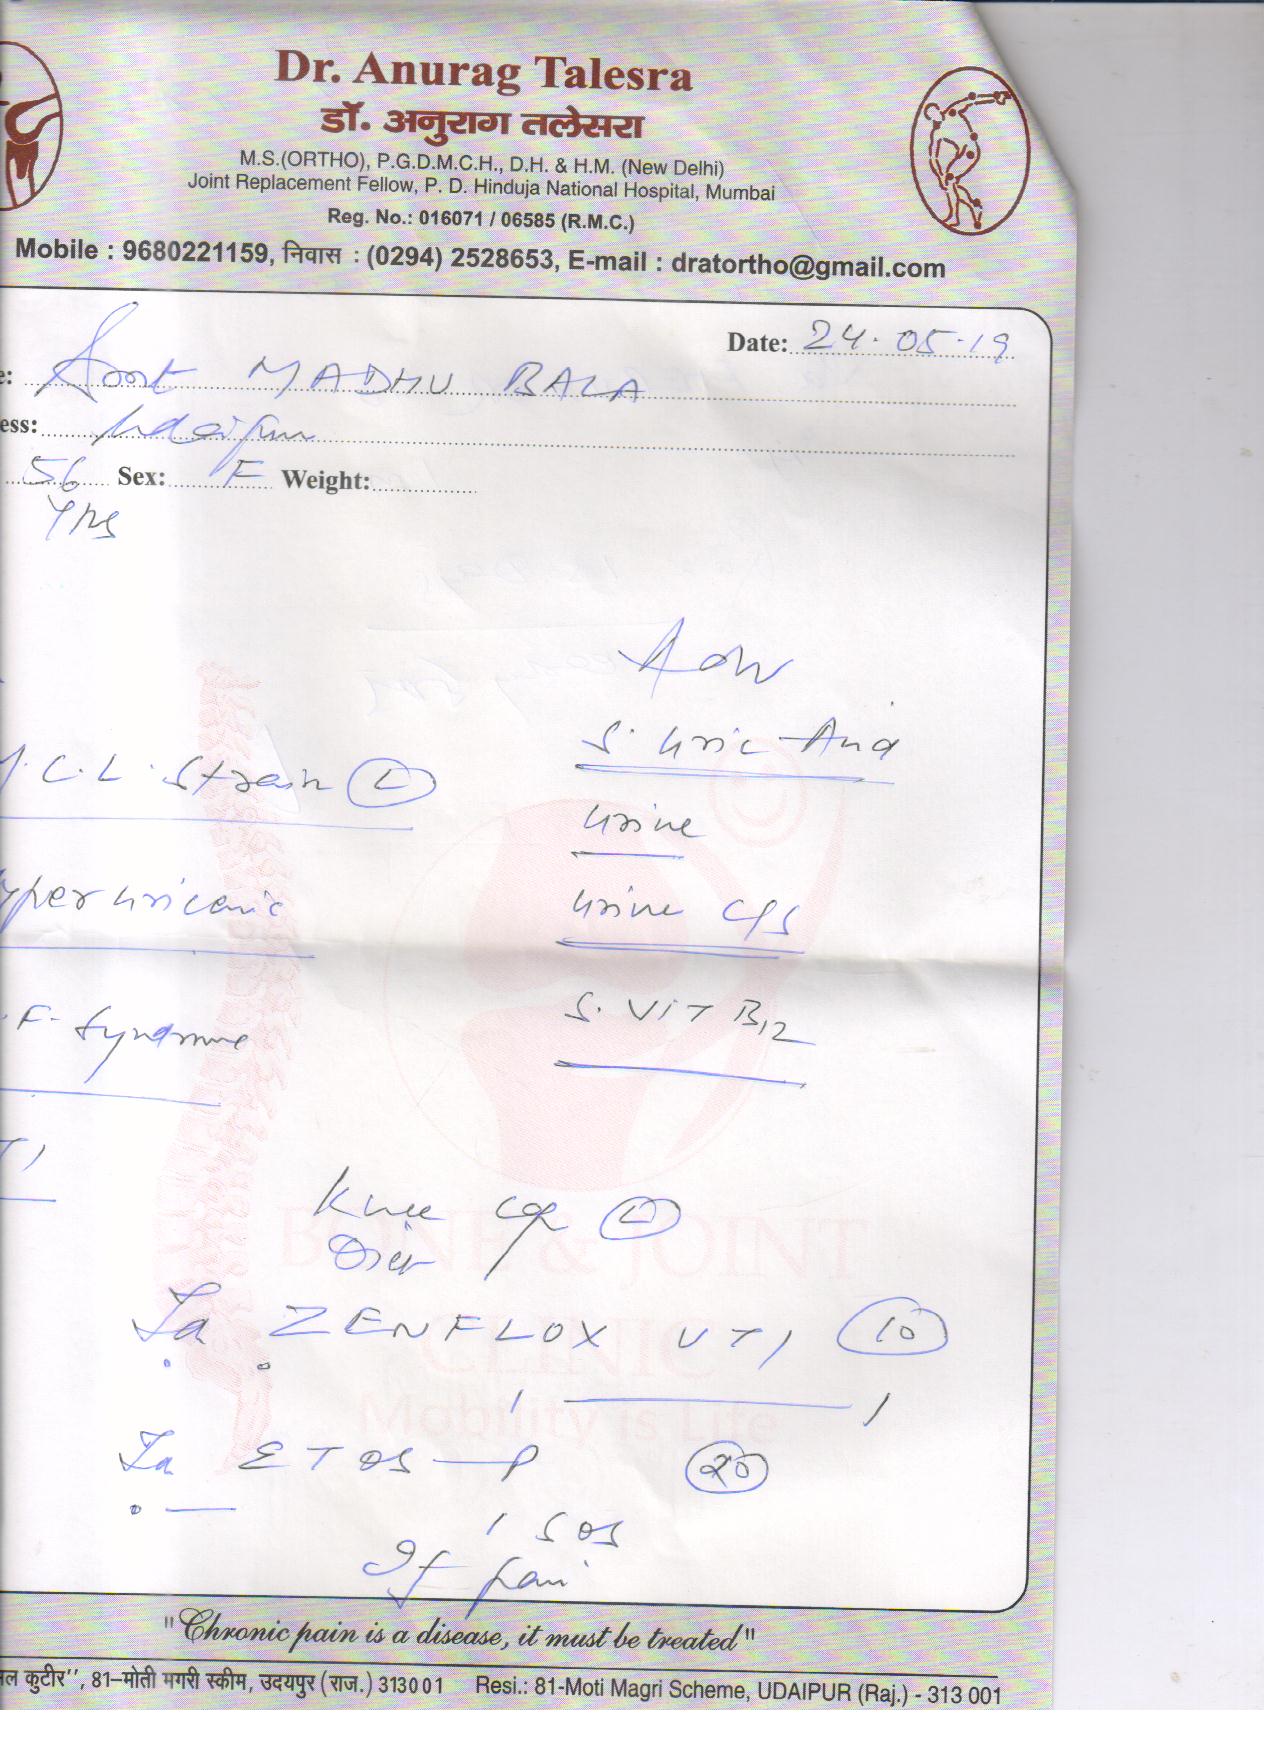 Dr. Anurag Talesra
डॉ. अनुराग तलेसरा
M.S.(ORTHO), P.G.D.M.C.H., D.H. & H.M. (New Delhi)
Joint Replacement Fellow, P. D. Hinduja National Hospital, Mumbai
Reg. No.: 016071 / 06585 (R.M.C.)
Mobile : 9680221159, निवास : (0294) 2528653, E-mail : dratortho@gmail.com
Date: 24.05.19
e: Smt MADHU BALA
ess: Udaipur
56 Sex: F Weight:
Yrs
Adv
S. Uric Acid
C.L. Strain (L)
Urine
yper uricemic
Urine C/S
S. VIT B12
.F. Syndrome
TI
Knee cap (L)
BONE & JOINT
CLINIC
Mobility is Life
Ta ZENFLOX UTI (10)
1 — 1
Ta ETOS-P (20)
1 SOS
If pain
"Chronic pain is a disease, it must be treated"
ल कुटीर'', 81–मोती मगरी स्कीम, उदयपुर (राज.) 313001 Resi.: 81-Moti Magri Scheme, UDAIPUR (Raj.) - 313 001